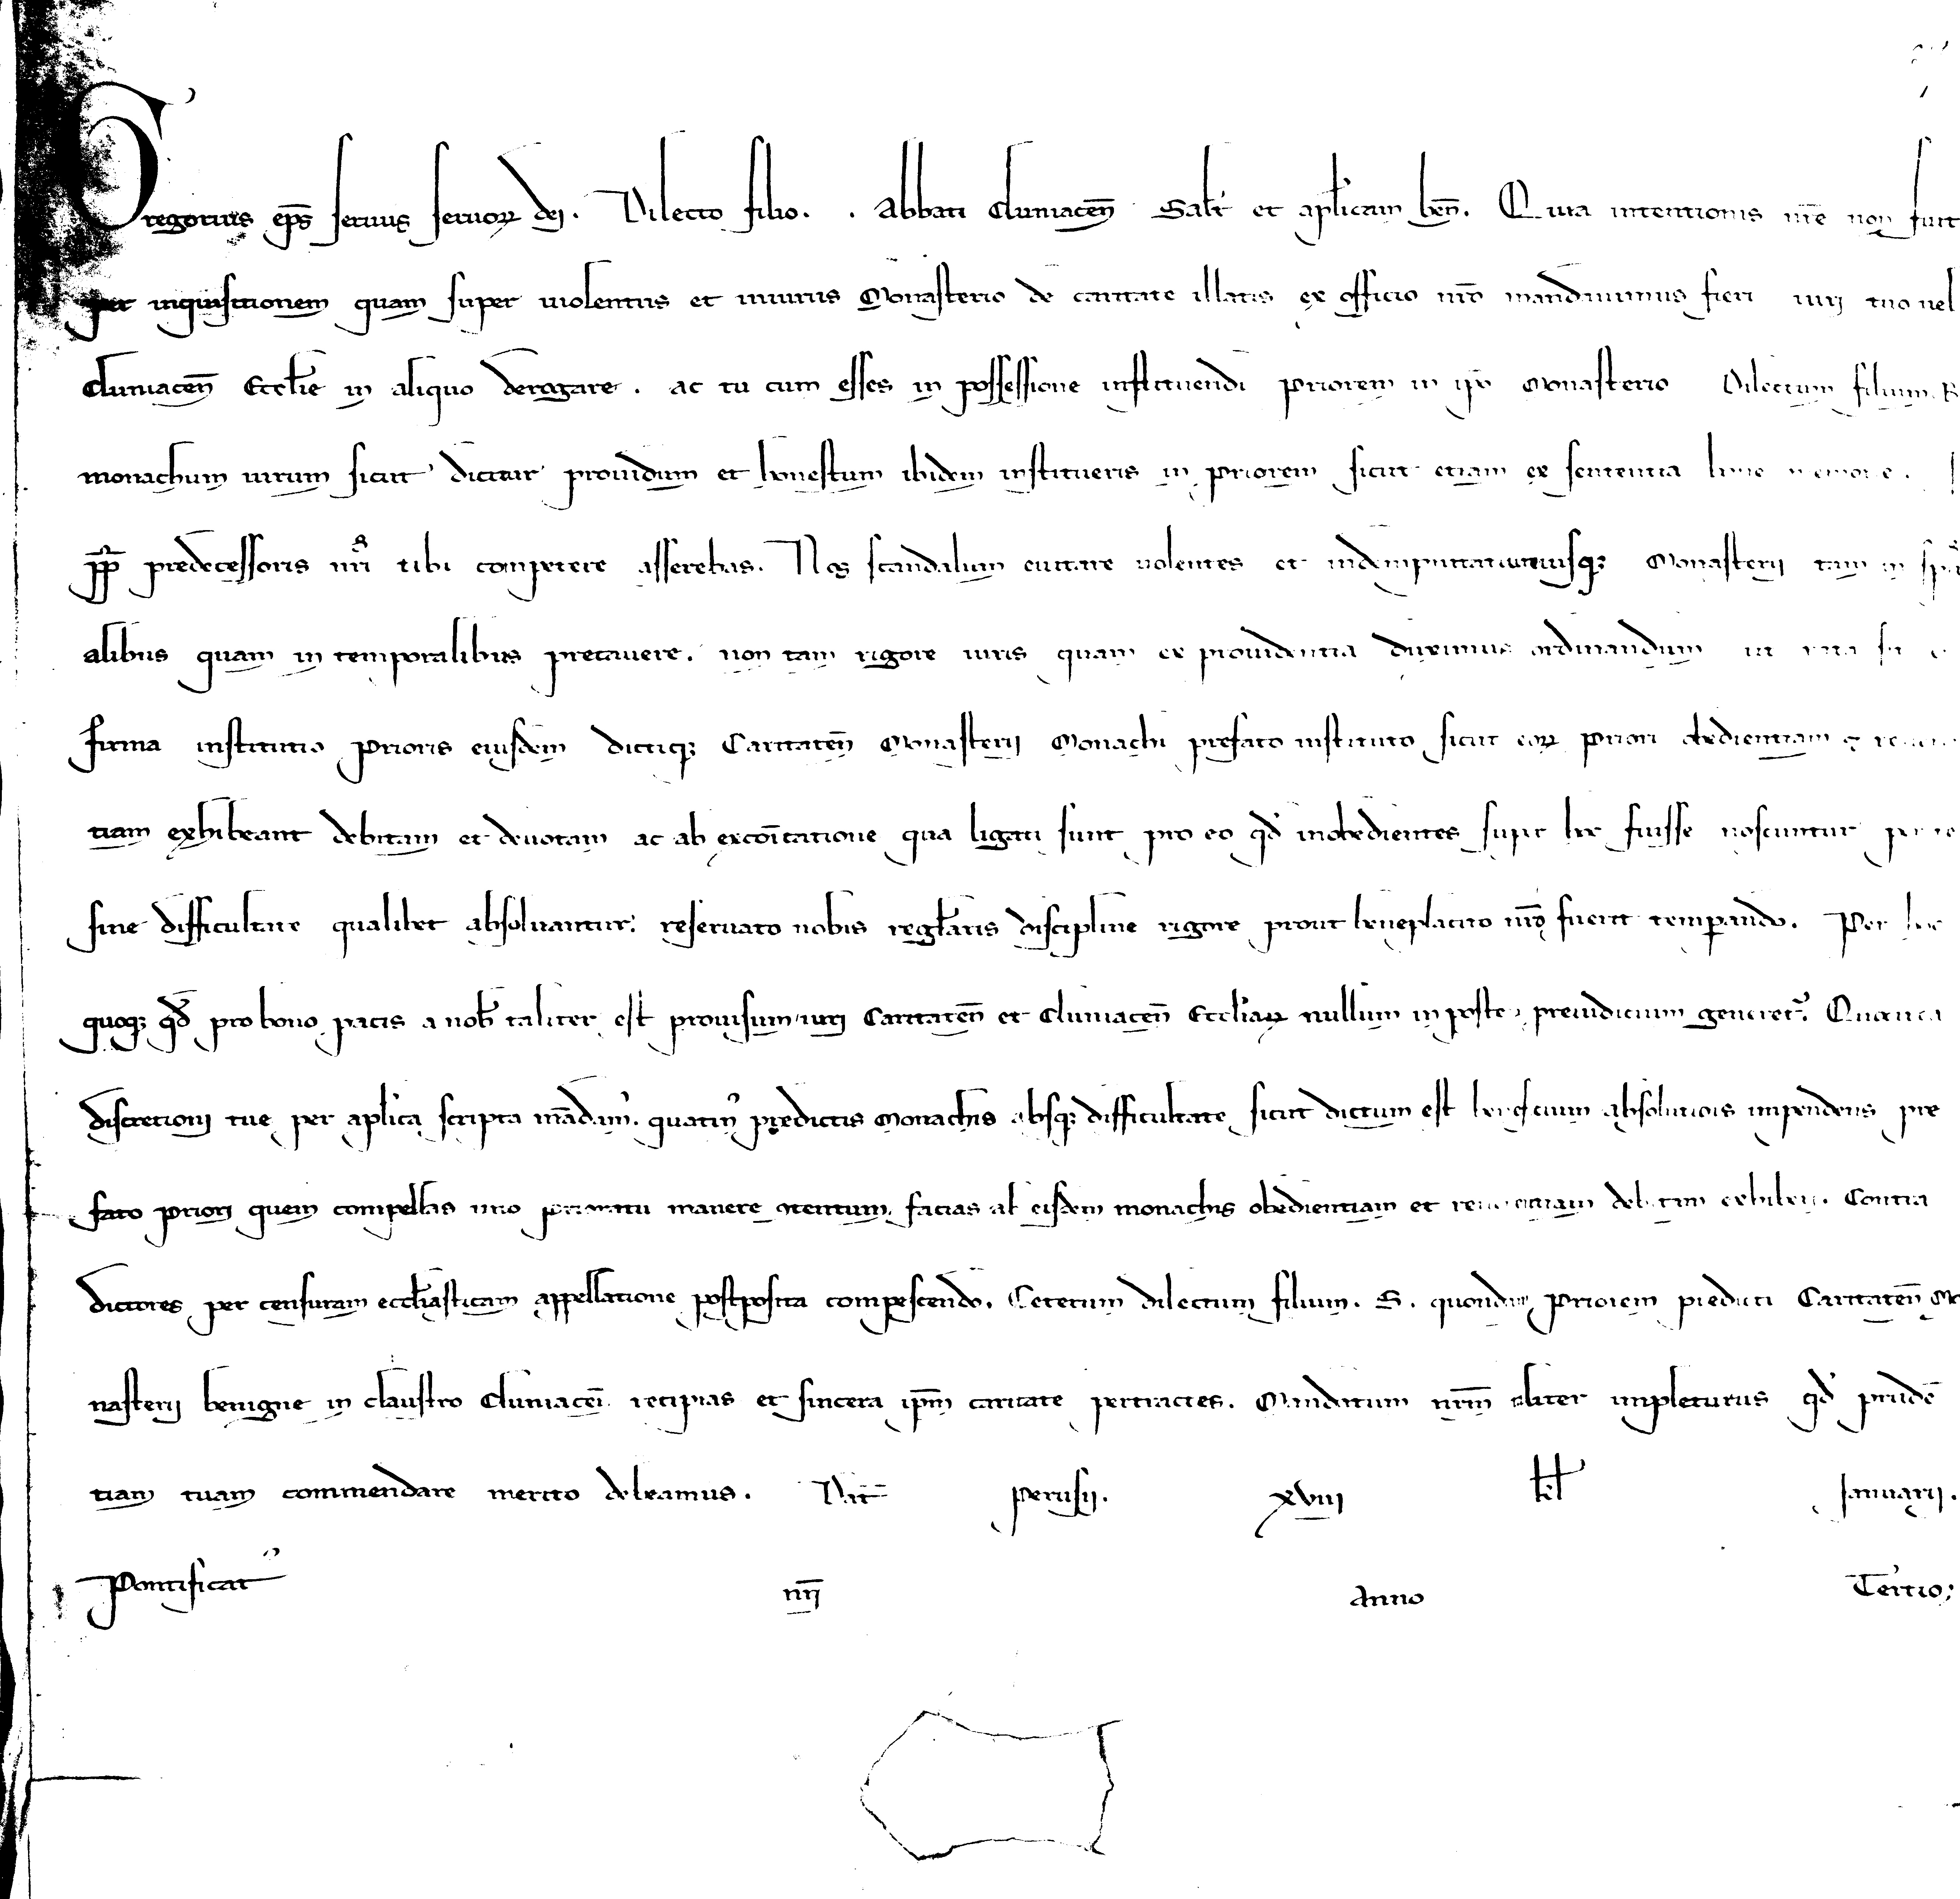 Gregorius ep̄s seruus seruoꝝ dei. Dilecto filio. . Abbati Cluniacen̄ Salt̄ et ap̄licam ben̄. Quia intentionis nr̄e non fuit
per inquisitionem quam super uiolentiis et iniuriis Monasterio de caritate illatis ex officio nr̄o mandauimus fieri iuri tuo uel
Cluniacen̄ Eccl̄ie in aliquo derogare. ac tu cum esses in possessione instituendi Priorem in ip̄o Monasterio Dilectum filium. R
monachum uirum sicut dicitur prouidum et honestum ibidem institueris in priorem sicut etiam ex sententia bone memorie.
pp̄ predecessoris nr̄i tibi competere asserebas. Nos scandalum euitare uolentes et indempnitati utriusqꝫ Monasterii tam in sp̄u
alibus quam in temporalibus precauere. non tam rigore iuris quam ex prouidentia duximus ordinandum ut rata sit
firma institutio Prioris eiusdem dictiqꝫ Caritaten̄ Monasterii Monachi prefato instituto sicut eoꝝ Priori obedientiam ꝯ reueren
tiam exhibeant debitam et deuotam ac ab excōitatione qua ligati sunt pro eo qd̄ inobedientes super hoc fuisse noscuntur per te
sine difficultate qualibet absoluantur. reseruato nobis regl̄aris discipline rigore prout beneplacito nr̄o fuerit temperando. Per hoc
quoqꝫ qd̄ pro bono pacis a nob̄ taliter est prouisum iuri Caritaten̄ et Cluniacen̄ Eccl̄iaꝝ nullum in posteꝝ preiudicium generet᷑. Quocirca
discretioni tue per ap̄lica scripta mādam᷒ quatin᷒ predictis Monachis absqꝫ difficultate sicut dictum est beneficium absolutiōis impendens pre
fato priori quem compellas uno prioratu manere ꝯtentum facias ab eisdem monachis obedientiam et reuerentiam debitam exhiberi. Contra
dictores per censuram eccl̄iasticam appellatione postposita compescendo. Ceterum dilectum filium. S. quondam Priorem predicti Caritaten̄ Mo
nasterii benigne in claustro Cluniacen̄ recipias et sincera ip̄m caritate pertractes. Mandatum nr̄m aliter impleturus qd̄ prudē
tiam tuam commendare merito debeamus. Dat̄ Perusii. xviii kl̄ Januarii.
Pontificat᷒ nr̄i Anno Tertio;